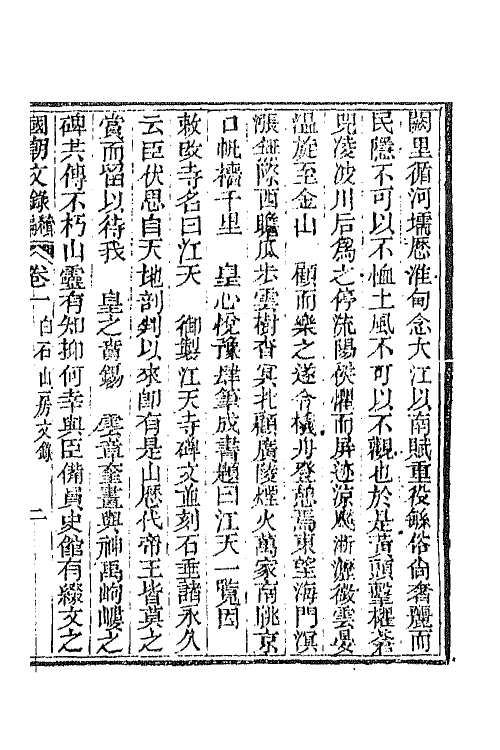 闕里循河壖歷淮甸念大江以南賦重役繇俗尚奢麗而
民隱不可以不恤土風不可以不觀也於是黃頭擊櫂蒼
兕淩波川后為之停流陽侯懼而屏迹涼飇淅瀝微雲晏
溫旋至金山　顧而樂之遂令檥舟登憩焉東望海門溟
漲無際西瞻瓜步雲樹杳冥北顧廣陵煙火萬家南眺京
口帆檣千里　皇心悅豫肆筆成書題曰江天一覽因
敕改寺名曰江天　御製江天寺碑文並刻石垂諸永久
云臣伏思自天地剖判以來卽有是山歷代帝王皆莫之
賞而留以待我　皇之賚錫　宸章奎畫與神禹岣嶁之
碑共傳不朽山靈有知抑何幸與臣備員史館有綴文之
國朝文錄續編　卷一　白石山房文錄　二